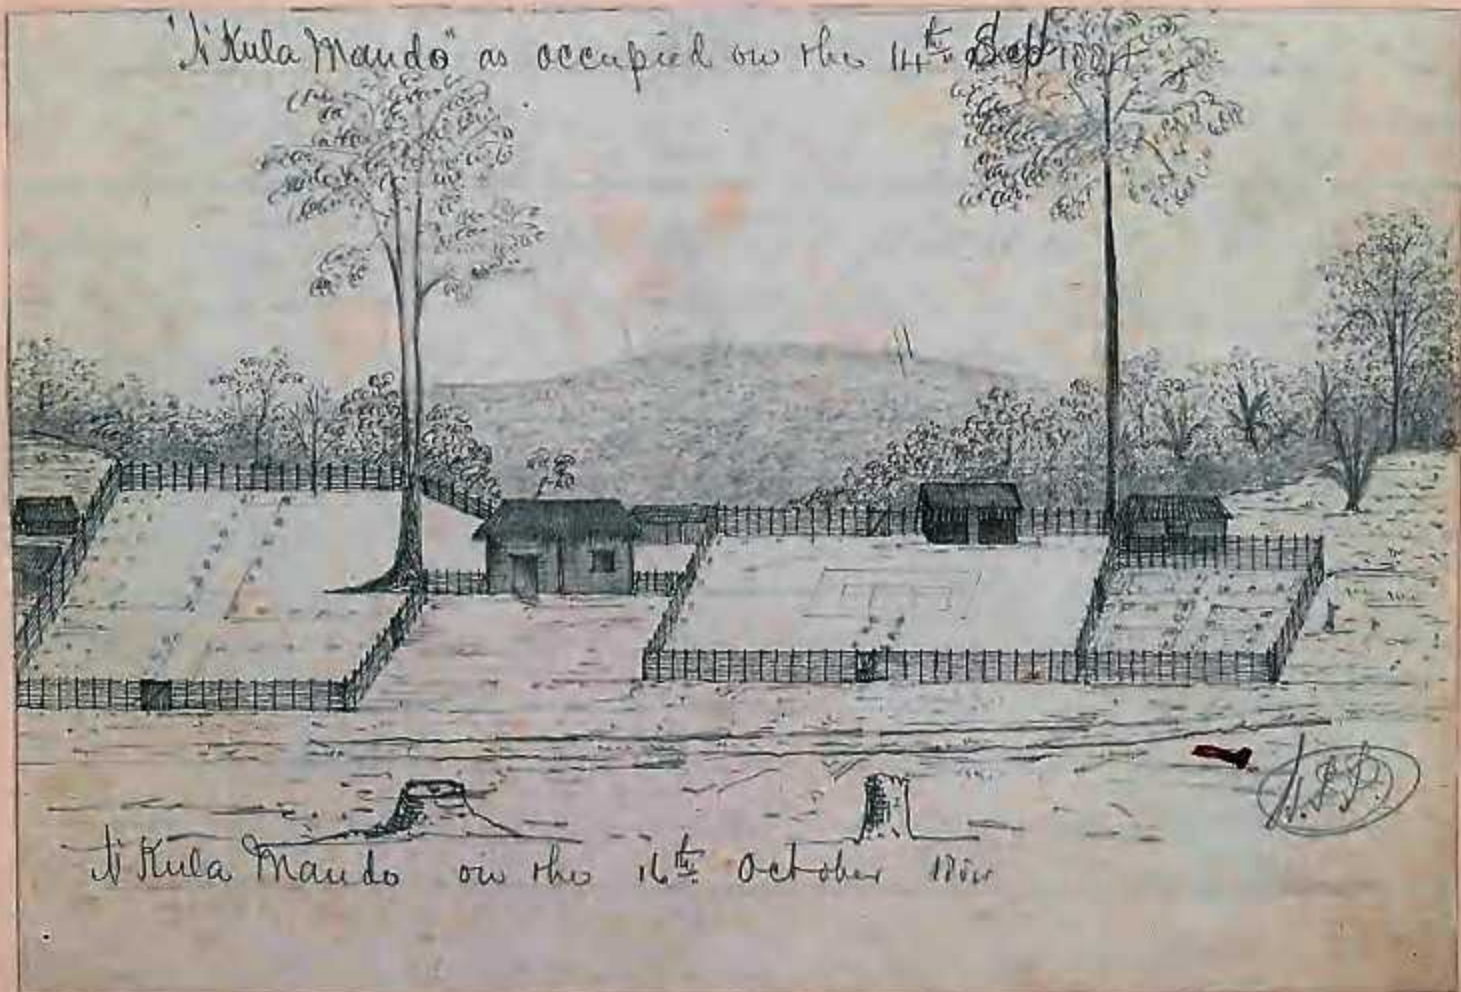 "N'Kula Mando" as occupied on the 14th Sept 1884
N'Kula Mando on the 16th October 1884